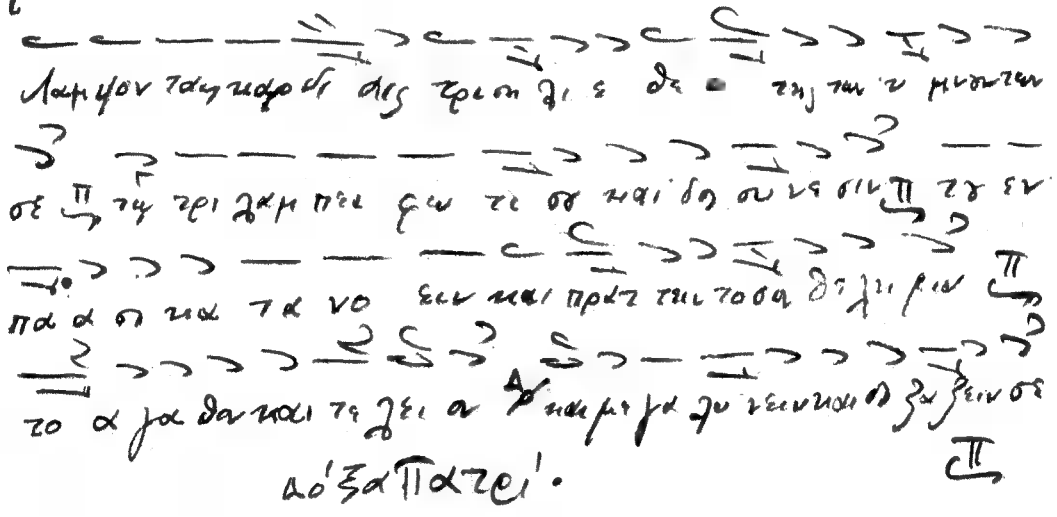 Λαμψον ταις καρδι αις τρισηλι ε θε της των υ μνουντων
σε π τη τρι λαμ πει φω τι σου και δος συ νε σιν π του εν
πα α σι κα τα νο ειν και πρατ τειν το σον θε λη μα π
το α γα θον και τε λει ον Δ και με γα λυ νειν και δο ξα ζειν σε
π
Δόξα Πατρί.